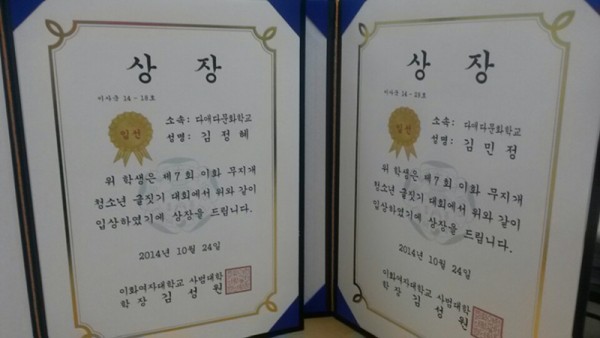 상 장
이사글 14 - 18호
입선
소속: 다애다문화학교
성명: 김정혜
위 학생은 제7회 이화 무지개
청소년 글짓기 대회에서 위와 같이
입상하였기에 상장을 드립니다.
2014년 10월 24일
이화여자대학교 사범대학
학장 김성원
상 장
14 - 20호
입선
소속: 다애다문화학교
성명: 김민정
위 학생은 제7회 이화 무지개
청소년 글짓기 대회에서 위와 같이
입상하였기에 상장을 드립니다.
2014년 10월 24일
이화여자대학교 사범대학
학장 김성원